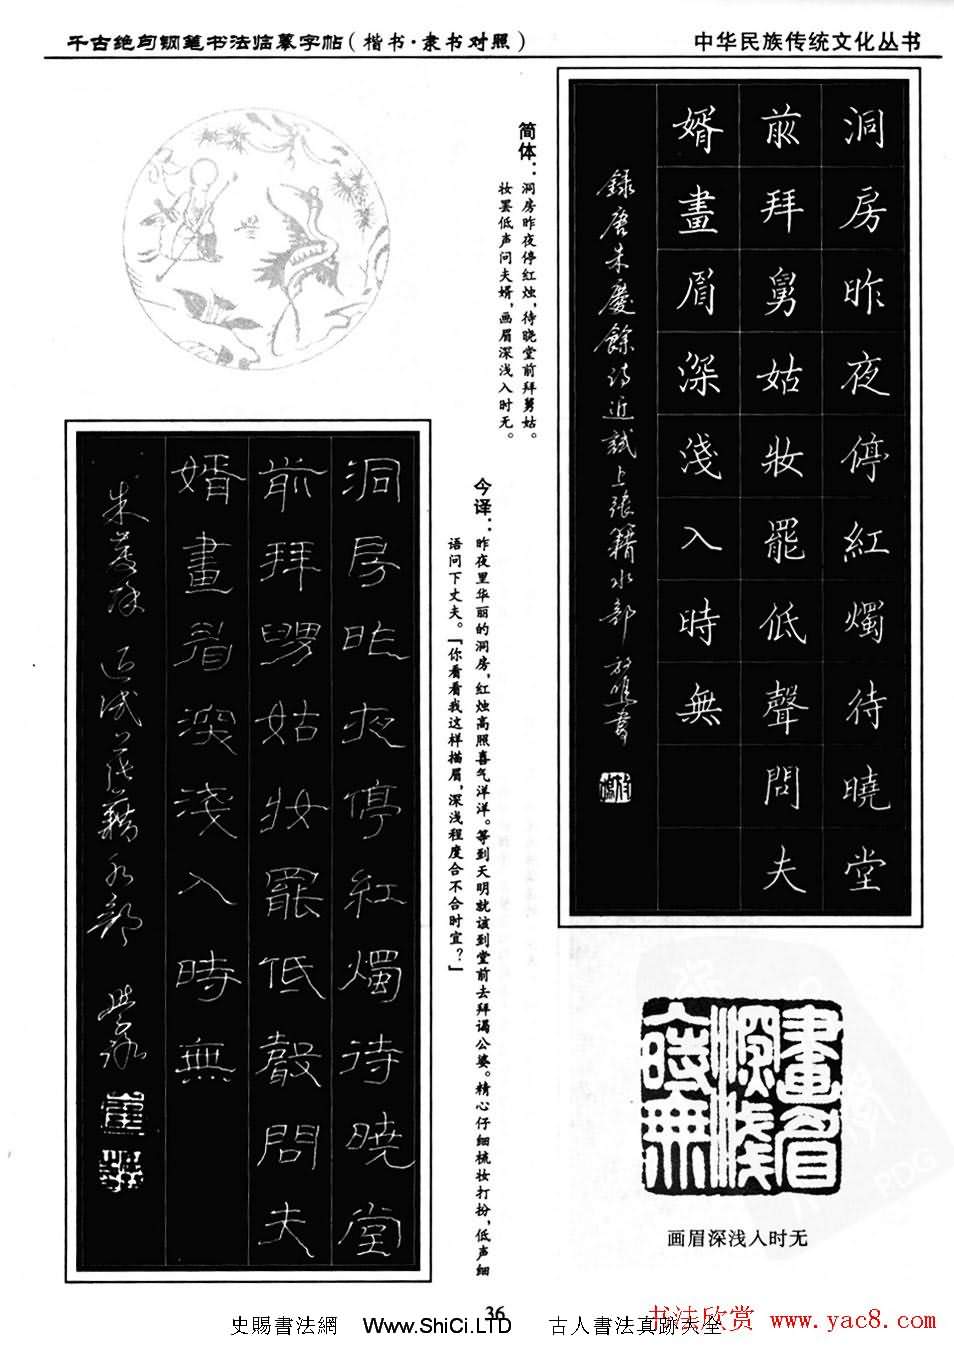 千古绝句钢笔书法临摹字帖（楷书·隶书对照）
中华民族传统文化丛书
洞房昨夜停紅燭待曉堂
前拜舅姑妝罷低聲問夫
婿畫眉深淺入時無
錄唐朱慶餘詩近試上張籍水部
简体：洞房昨夜停红烛，待晓堂前拜舅姑。
妆罢低声问夫婿，画眉深浅入时无。
今译：昨夜里华丽的洞房，红烛高照喜气洋洋。等到天明就该到堂前去拜谒公婆。精心仔细梳妆打扮，低声细
语问下丈夫。「你看看我这样描眉，深浅程度合不合时宜？」
洞房昨夜停紅燭待曉堂
前拜舅姑妝罷低聲問夫
婿畫眉深淺入時無
朱慶餘 近試上張籍水部
畫眉
深淺
入時無
画眉深浅入时无
36
史賜書法網 Www.ShiCi.LTD 古人書法真跡大全
书法欣赏 www.yac8.com
PDG